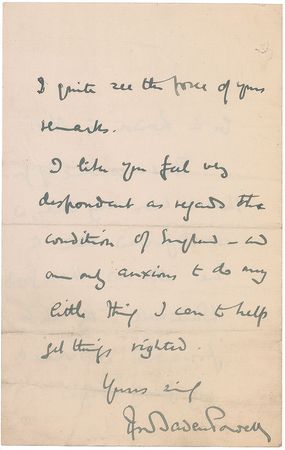 I quite see the force of yours
remarks.
I like you feel very
despondent as regards the
condition of England – and
am only anxious to do any
little thing I can to help
get things righted.
Yours
Baden Powell